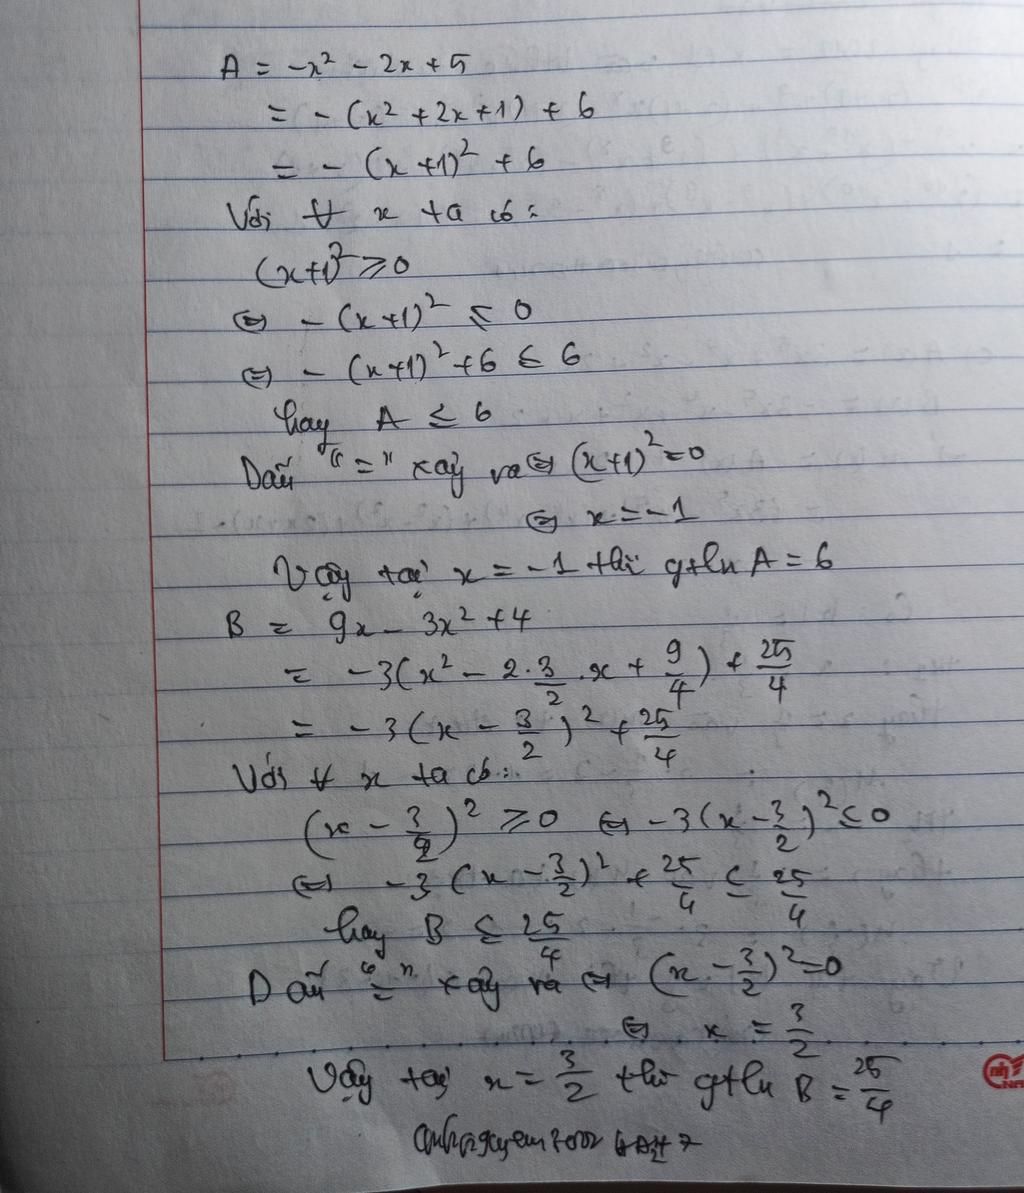 A = -x² - 2x + 5
= - (x² + 2x + 1) + 6
= - (x + 1)² + 6
Với ∀ x ta có:
(x+1)² ≥ 0
⇔ - (x+1)² ≤ 0
⇔ - (x+1)² + 6 ≤ 6
hay A ≤ 6
Dấu "=" xảy ra ⇔ (x+1)² = 0
⇔ x = -1
Vậy tại x = -1 thì gtln A = 6
B = 9x - 3x² + 4
= -3(x² - 2.3/2.x + 9/4) + 25/4
= -3(x - 3/2)² + 25/4
Với ∀ x ta có:
(x - 3/2)² ≥ 0 ⇔ -3(x - 3/2)² ≤ 0
⇔ -3(x - 3/2)² + 25/4 ≤ 25/4
hay B ≤ 25/4
Dấu "=" xảy ra ⇔ (x - 3/2)² = 0
⇔ x = 3/2
Vậy tại x = 3/2 thì gtln B = 25/4